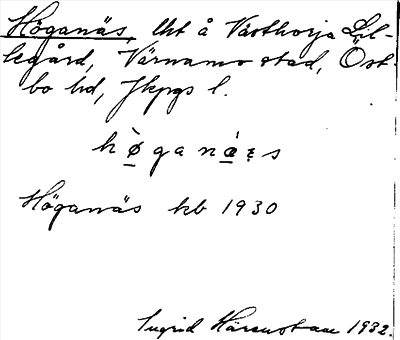 Höganäs, lht å Västhorja Lil-
legård, Värnamo stad, Öst-
bo hd, Jkpgs l.
höganä:s
Höganäs kb 1930
Ingrid 1932.